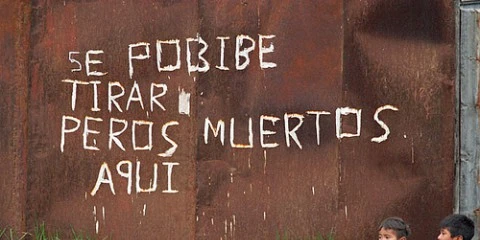 SE POBIBE
TIRAR
PEROS MUERTOS.
AQUI